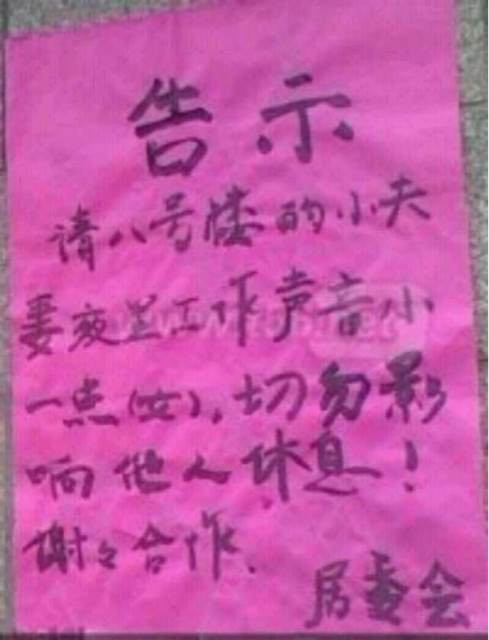 告示
请八号楼的小夫
妻夜里工作声音小
一点(女),切勿影
响他人休息!
谢々合作.
居委会